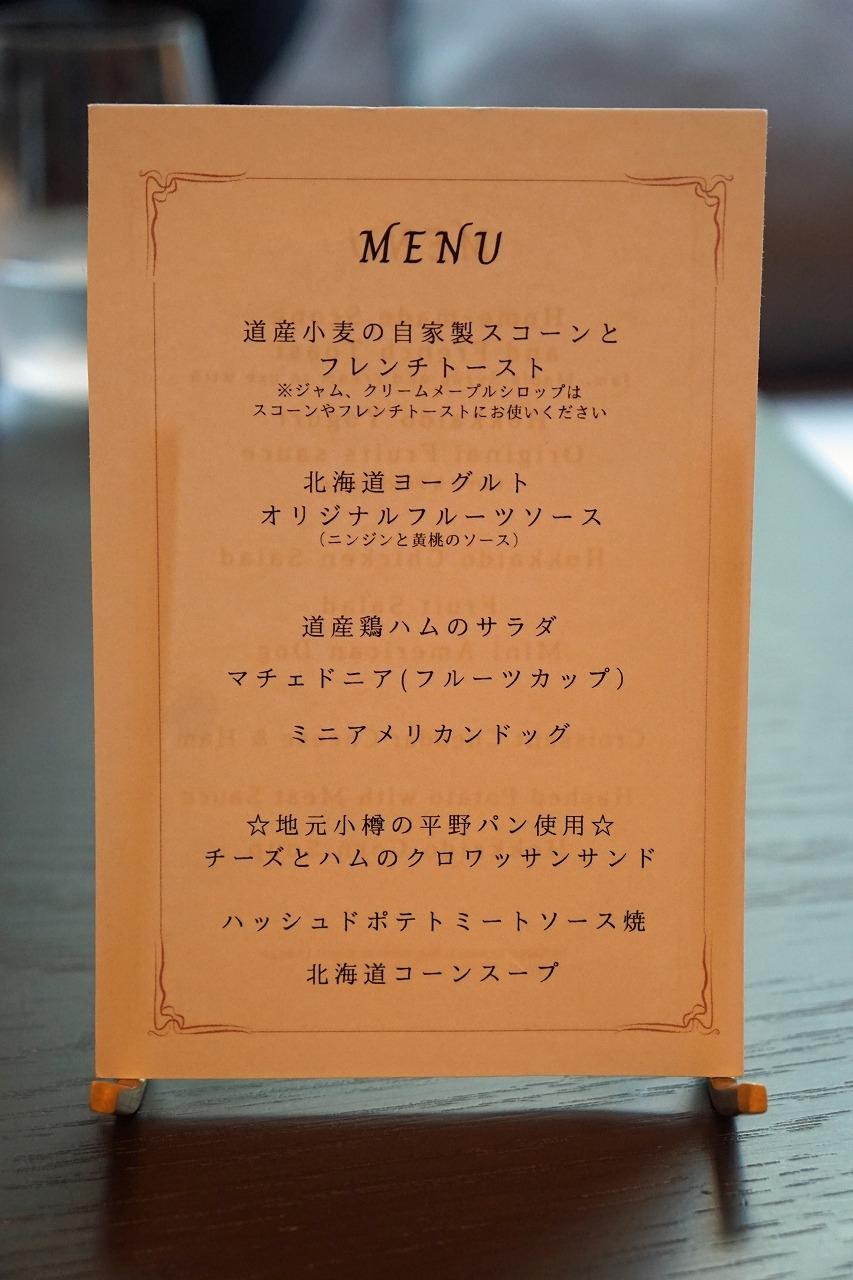 MENU
道産小麦の自家製スコーンと
フレンチトースト
※ジャム、クリームメープルシロップは
スコーンやフレンチトーストにお使いください
北海道ヨーグルト
オリジナルフルーツソース
（ニンジンと黄桃のソース）
道産鶏ハムのサラダ
マチェドニア(フルーツカップ）
ミニアメリカンドッグ
☆地元小樽の平野パン使用☆
チーズとハムのクロワッサンサンド
ハッシュドポテトミートソース焼
北海道コーンスープ